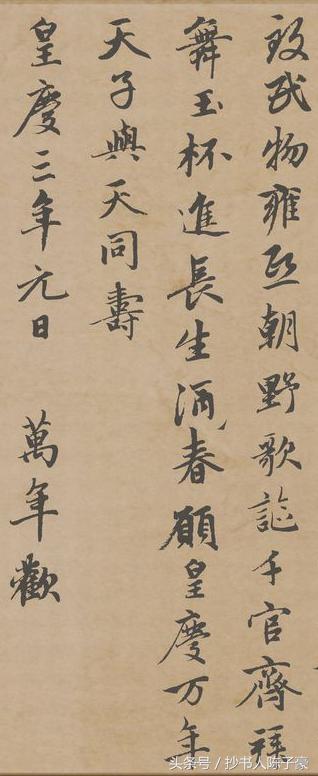 致民物雍熙朝野歌謳千官齊拜
舞玉杯進長生酒春願皇慶万年
天子與天同壽
皇慶三年元日 萬年歡
头条号 / 抄书人陈子豪